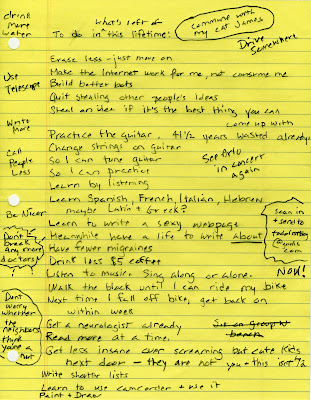 drink
more
water
What's left of
To do in this lifetime:
commune with
my cat James
Drive
Somewhere
Erase less - just move on
Use
Telescope
Make the Internet work for me, not consume me
Build better bots
Quit stealing other people's ideas
Steal an idea if it's the best thing you can
come up with
Write
More
Practice the guitar. 41 1/2 years wasted already.
Change strings on guitar
Call
People
Less
So I can tune guitar
So I can practice
Learn by listening
See Arlo
in concert
again
Learn Spanish, French, Italian, Hebrew
maybe Latin + Greek?
Be Nicer
Learn to write a sexy webpage
Don't
break
any more
doctors!
Meanwhile have a life to write about
Have fewer migraines
Drink less $5 coffee
Scan in
+ send to
todolistblog
@gmail.
com
NOW!
Listen to music. Sing along or alone.
Walk the block until I can ride my bike
Next time I fall off bike, get back on
within week
Don't
worry
whether
the
neighbors
think
you're a
nut
Get a neurologist already
Sit on group W
bench
Read more at a time.
Get less insane over screaming but cute kids
next door - they are not you + this isn't 1/2
Write shorter lists
Learn to use camcorder + use it
Paint + Draw